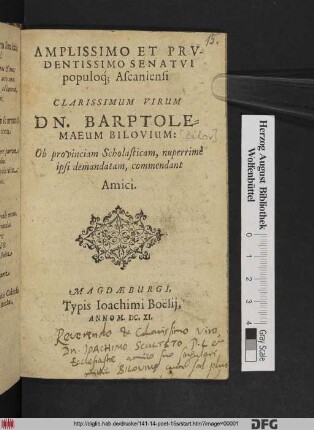 15.
AMPLISSIMO ET PRV-
DENTISSIMO SENATVI
populoq; Ascaniensi
CLARISSIMUM VIRUM
DN. BARPTOLE-
MAEUM BILOVIUM:
Ob provinciam Scholasticam, nuperrimè
ipsi demandatam, commendant
Amici.
MAGDÆBURGI,
Typis Ioachimi Boëlij,
ANNO M. DC. XI.
Reverendo & Clarissimo Viro,
Dn. IOACHIMO SCULTETO, P.L.
Ecclesiastae amico suo singulari
BILOVIUS
Herzog August Bibliothek
Wolfenbüttel
0 1 2 3 4 5
Gray Scale
http://diglib.hab.de/drucke/141-14-poet-15s/start.htm?image=00001
DFG